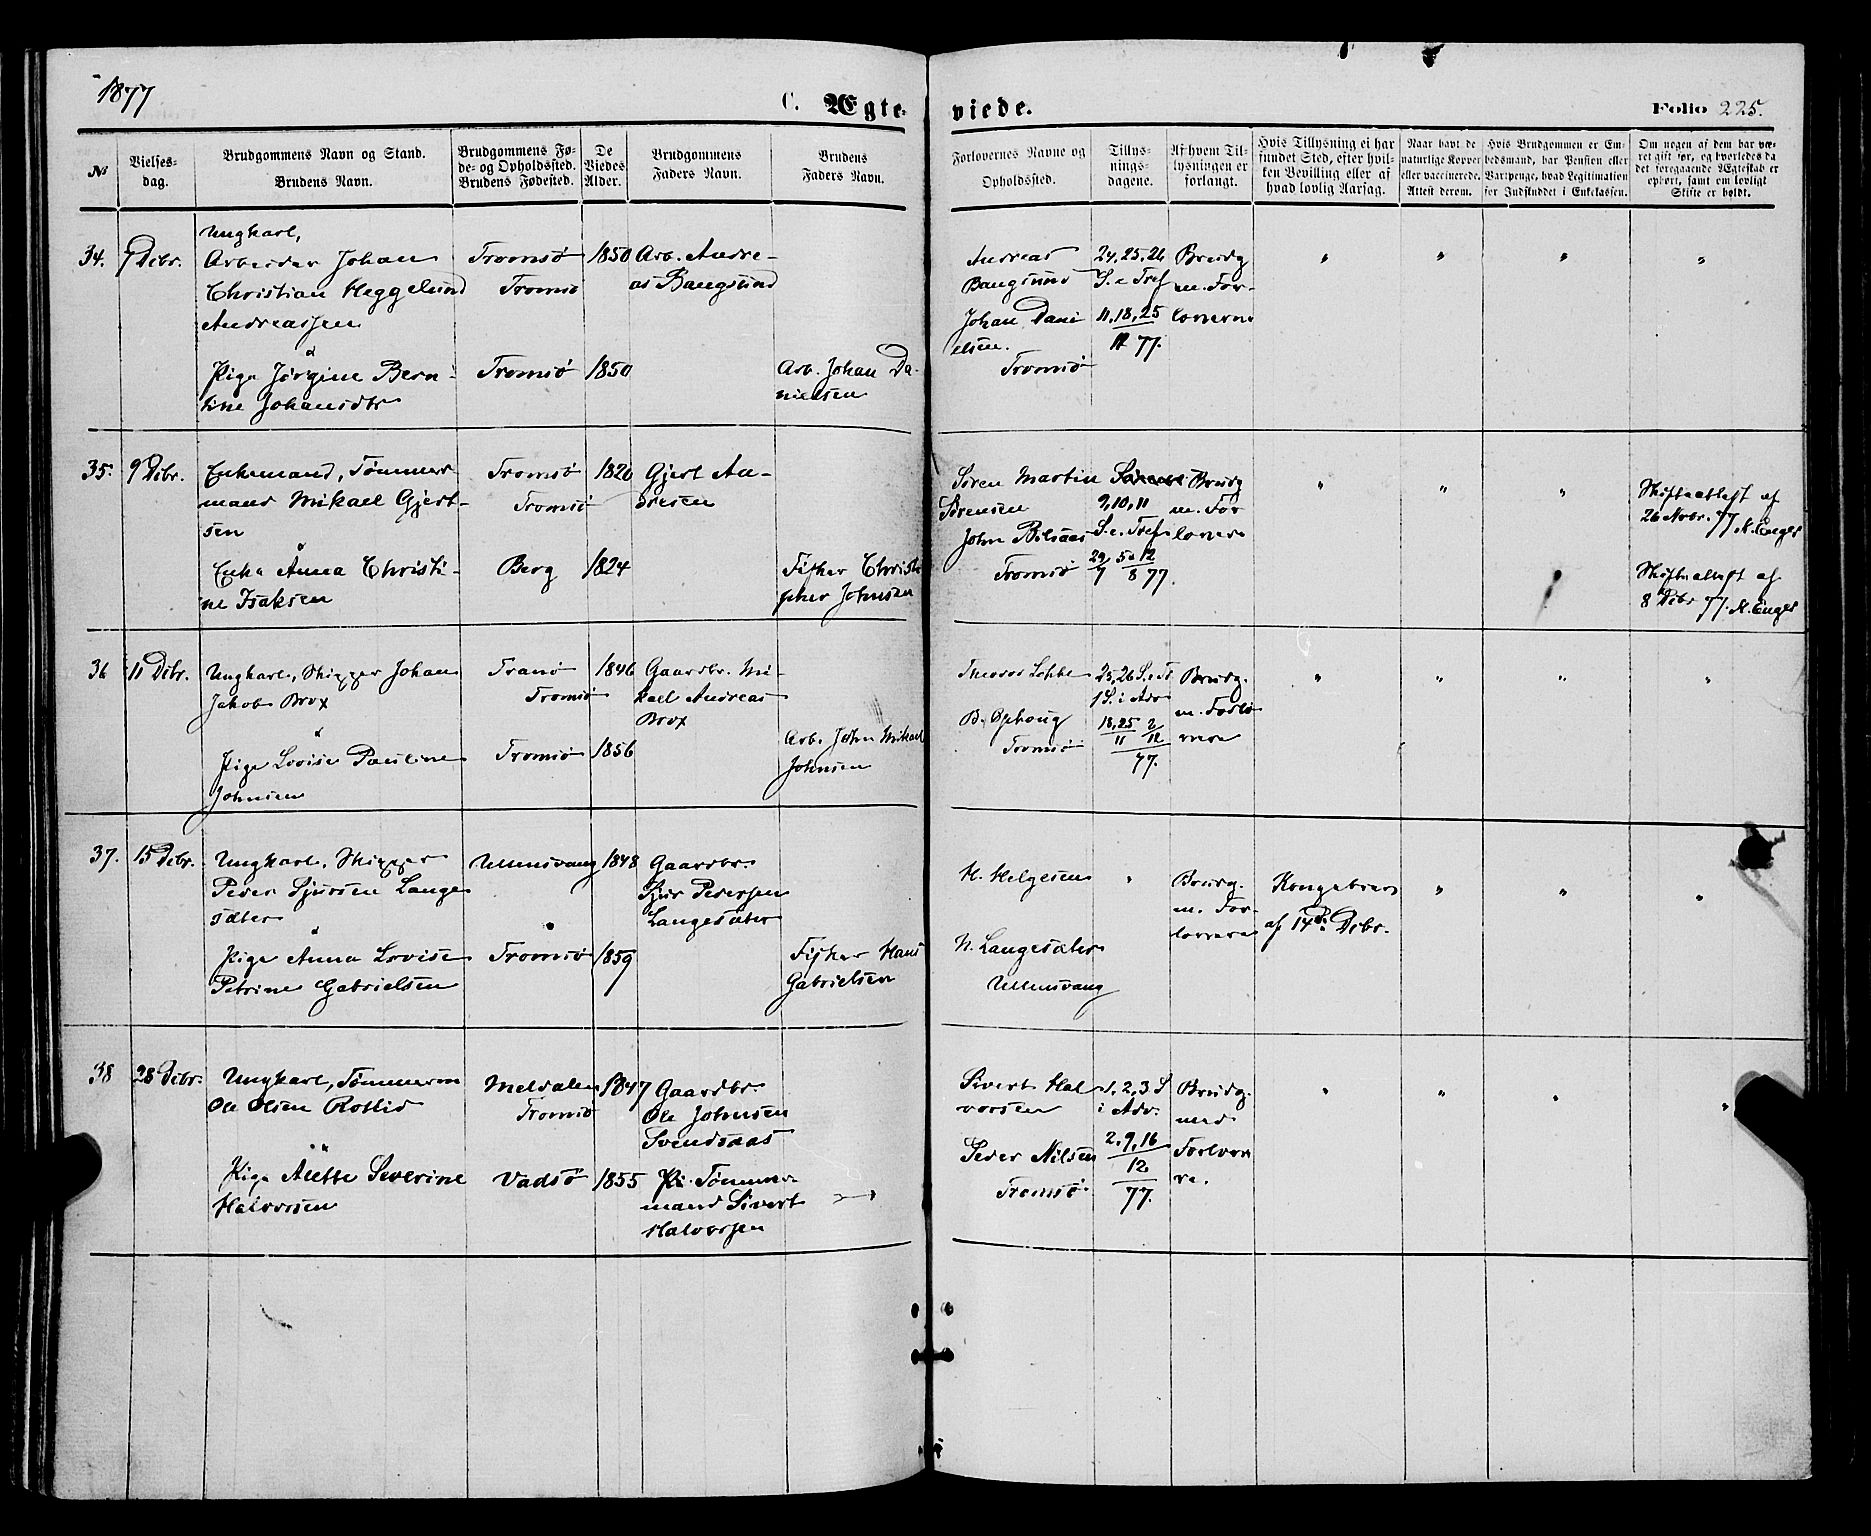 1877
C. Ægte-
viede.
Folio 225.
No
Vielses-
dag.
Brudgommens Navn og Stand.
Brudens Navn.
Brudgommens Fø-
de- og Opholdssted.
Brudens Fødested.
De
Viedes
Alder.
Brudgommens
Faders Navn.
Brudens
Faders Navn.
Forlovernes Navne og
Opholdssted.
Tillys-
nings-
dagene.
Af hvem Til-
lysningen er
forlangt.
Hvis Tillysning ei har
fundet Sted, efter hvil-
ken Bevilling eller af
hvad lovlig Aarsag.
Naar havt de
naturlige Kopper
eller vaccinerede.
Attest derom.
Hvis Brudgommen er Em-
bedsmand, har Pension eller
Vartpenge, hvad Legitimation
for Indskuddet i Enkekassen.
Om nogen af dem har væ-
ret gift før, og hvorledes da
det foregaaende Ægteskab er
ophørt, samt om lovligt
Skifte er holdt.
34.
7 Decbr.
Ungkarl,
Arbeider Johan
Christian Heggelund
Andreassen
&
Pige Jørgine Bern-
tine Johansdtr
Tromsø
Tromsø
Tromsø
1850
1850
Arb. Andre-
as Bangsund
Arb. Johan Da-
nielsen
Andreas
Bangsund
Johan Dani
elsen.
Tromsø
24, 25, 26
S. e. Tref
11, 18, 25
11 77.
Brudg
m. For-
lovern
" " " "
35.
9 Decbr.
Enkemand, Tømmer
mand Mikael Gjert-
sen
&
Enke Anna Christi-
ne Isaksen
Tromsø
Tromsø
Berg
1820
1824
Gjert An-
dresen
Fisker Christo
pher Johnsen
Søren Martin
Sørensen
John
Tromsø
9, 10, 11
S. e. Tref
29/7 5 & 12/8 77.
Brudg
m. For
lovere
" " "
Skifteattest af
26 Novbr. 77
Skifteattest af
8 Decbr 77.
36
11 Decbr.
Ungkarl, Skipper Johan
Jakob Brox
&
Pige Lovise Pauline
Johnsen
Tranø
Tromsø
Tromsø
1846
1856
Gaardbr. Mi-
kael Andreas
Brox
Arb. John Mikael
Johnsen
B.
Tromsø
25, 26 S. e. Tr.
1 S. i Adv
18, 25/11 2/12
77.
Brudg.
m. Forlo
vere
" " " "
37.
15 Decbr.
Ungkarl, Skipper
Peder Sjursen Lange
sæter
&
Pige Anna Lovise
Petrine Gabrielsen
Ullensvang
"
Tromsø
1848
1859
Gaardbr.
Sjur Pedersen
Langesæter
Fisker Hans
Gabrielsen
H. Helgesen
N. Langesæter
Ullensvang
"
Brudg.
m. For-
lovere
Kongebrev
af 14de Decbr.
" " "
38
28 Decbr.
Ungkarl, Tømmerm
Ole Olsen Rotlid
&
Pige Alette Severine
Halvorsen
Meldalen
Tromsø
Vadsø
1847
1855
Gaardbr.
Ole Johnsen
Svendsaas
Tømmer
mand Sivert
Halvorsen
Sivert Hal
vorsen
Peder Nilsen
Tromsø
1, 2, 3 S
i Adv.
2, 9, 16
12
77.
Brudg.
med
Forlove
re.
" " " "